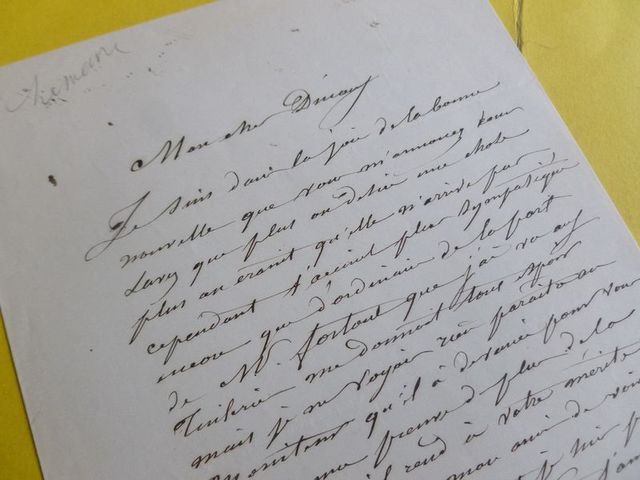 Mon cher Dinaux
Je suis dans la joie de la bonne
nouvelle que vous m'annoncez vous
savez que plus on désire une chose
plus on craint qu'elle n'arrive pas
cependant l'accueil plus sympatique
encore que d'ordinaire de la part
de Mr. Fortoul que j'ai vu aux
Tuilerie me donnait tous espoir
mais je ne voyais rien paraitre au
moniteur qu'il a devancé pour vous
une preuve de plus de la
il rend à votre mérite
mon ami de
je lui